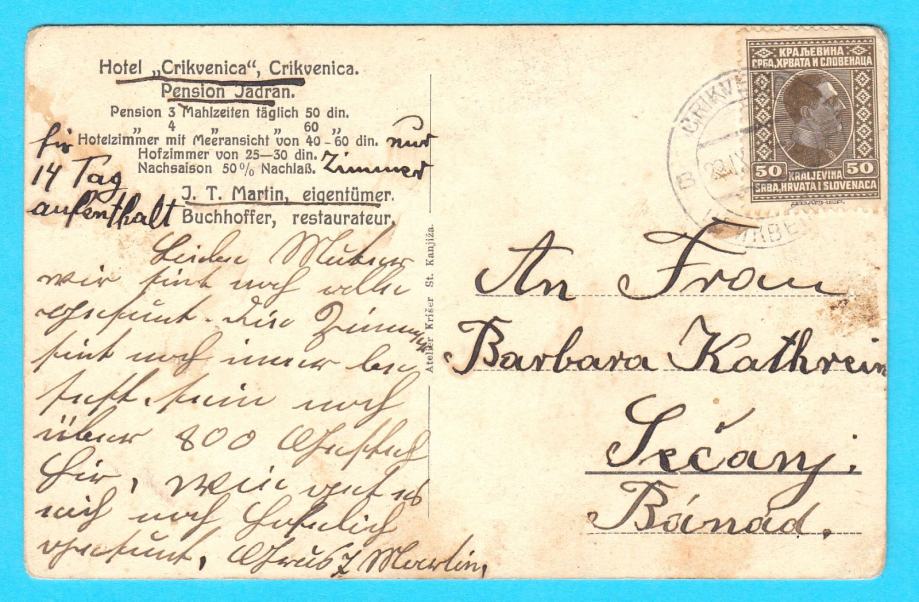 Hotel „Crikvenica“, Crikvenica.
Pension Jadran.
Pension 3 Mahlzeiten täglich 50 din.
„ 4 „ „ 60 „
Hotelzimmer mit Meeransicht von 40-60 din.
Hofzimmer von 25—30 din.
Nachsaison 50% Nachlaß.
J. T. Martin, eigentümer.
Buchhoffer, restaurateur.
für
14 Tag
aufenthalt
nur
Zimmer
Liebe Mutter
wir sint noch alle
gesunt. Die Zimmer
sint noch imer be
setzt. sein noch
über 800
hir, wir
mich noch
gesunt, Martin,
Atelier Krišer St. Kanjiža.
КРАЉЕВИНА
СРБА, ХРВАТА И СЛОВЕНАЦА
50 50
KRALJEVINA
SRBA, HRVATA I SLOVENACA
CRIKVE
An Frau
Barbara Kathrein
Sečanj.
Bánád.